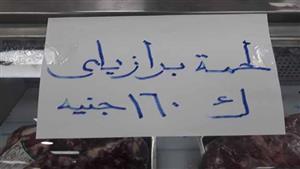 لحمة برازيلى
ك ١٦٠ جنيه